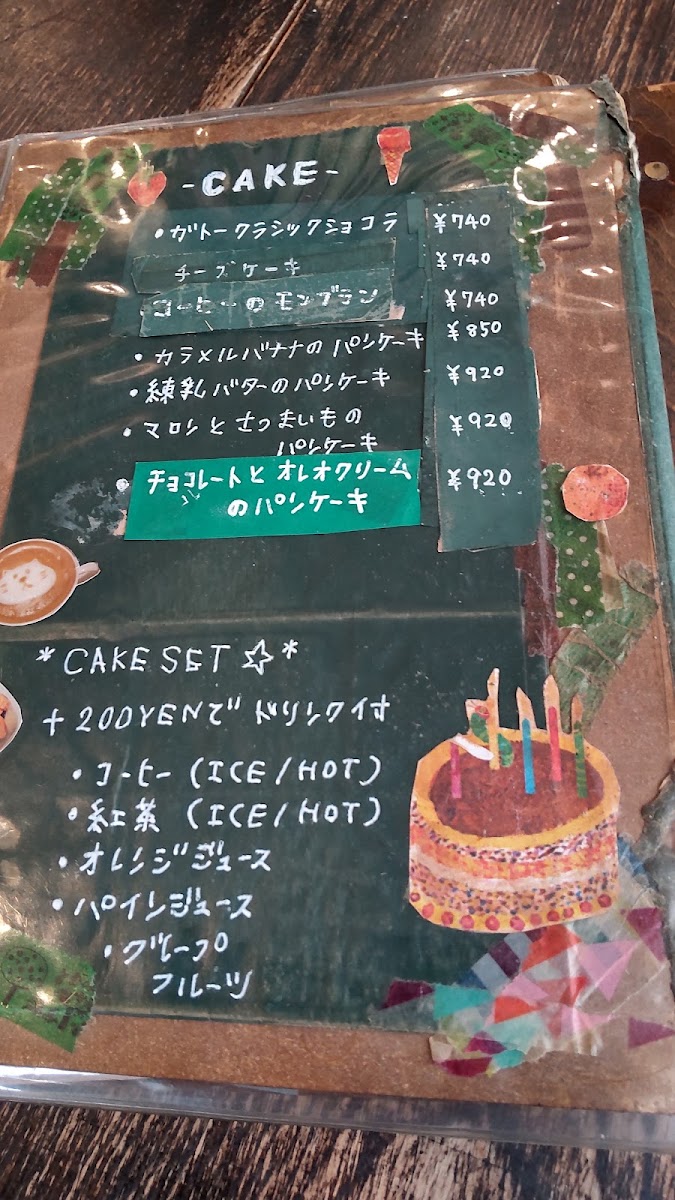 -CAKE-
・ガトークラシックショコラ ¥740
チーズケーキ ¥740
コーヒーのモンブラン ¥740
・カラメルバナナのパンケーキ ¥850
・練乳バターのパンケーキ ¥920
・マロンとさつまいもの ¥920
パンケーキ
・チョコレートとオレオクリーム ¥920
のパンケーキ
*CAKE SET☆*
+200YENでドリンク付
・コーヒー (ICE/HOT)
・紅茶 (ICE/HOT)
・オレンジジュース
・パインジュース
・グレープ
フルーツ